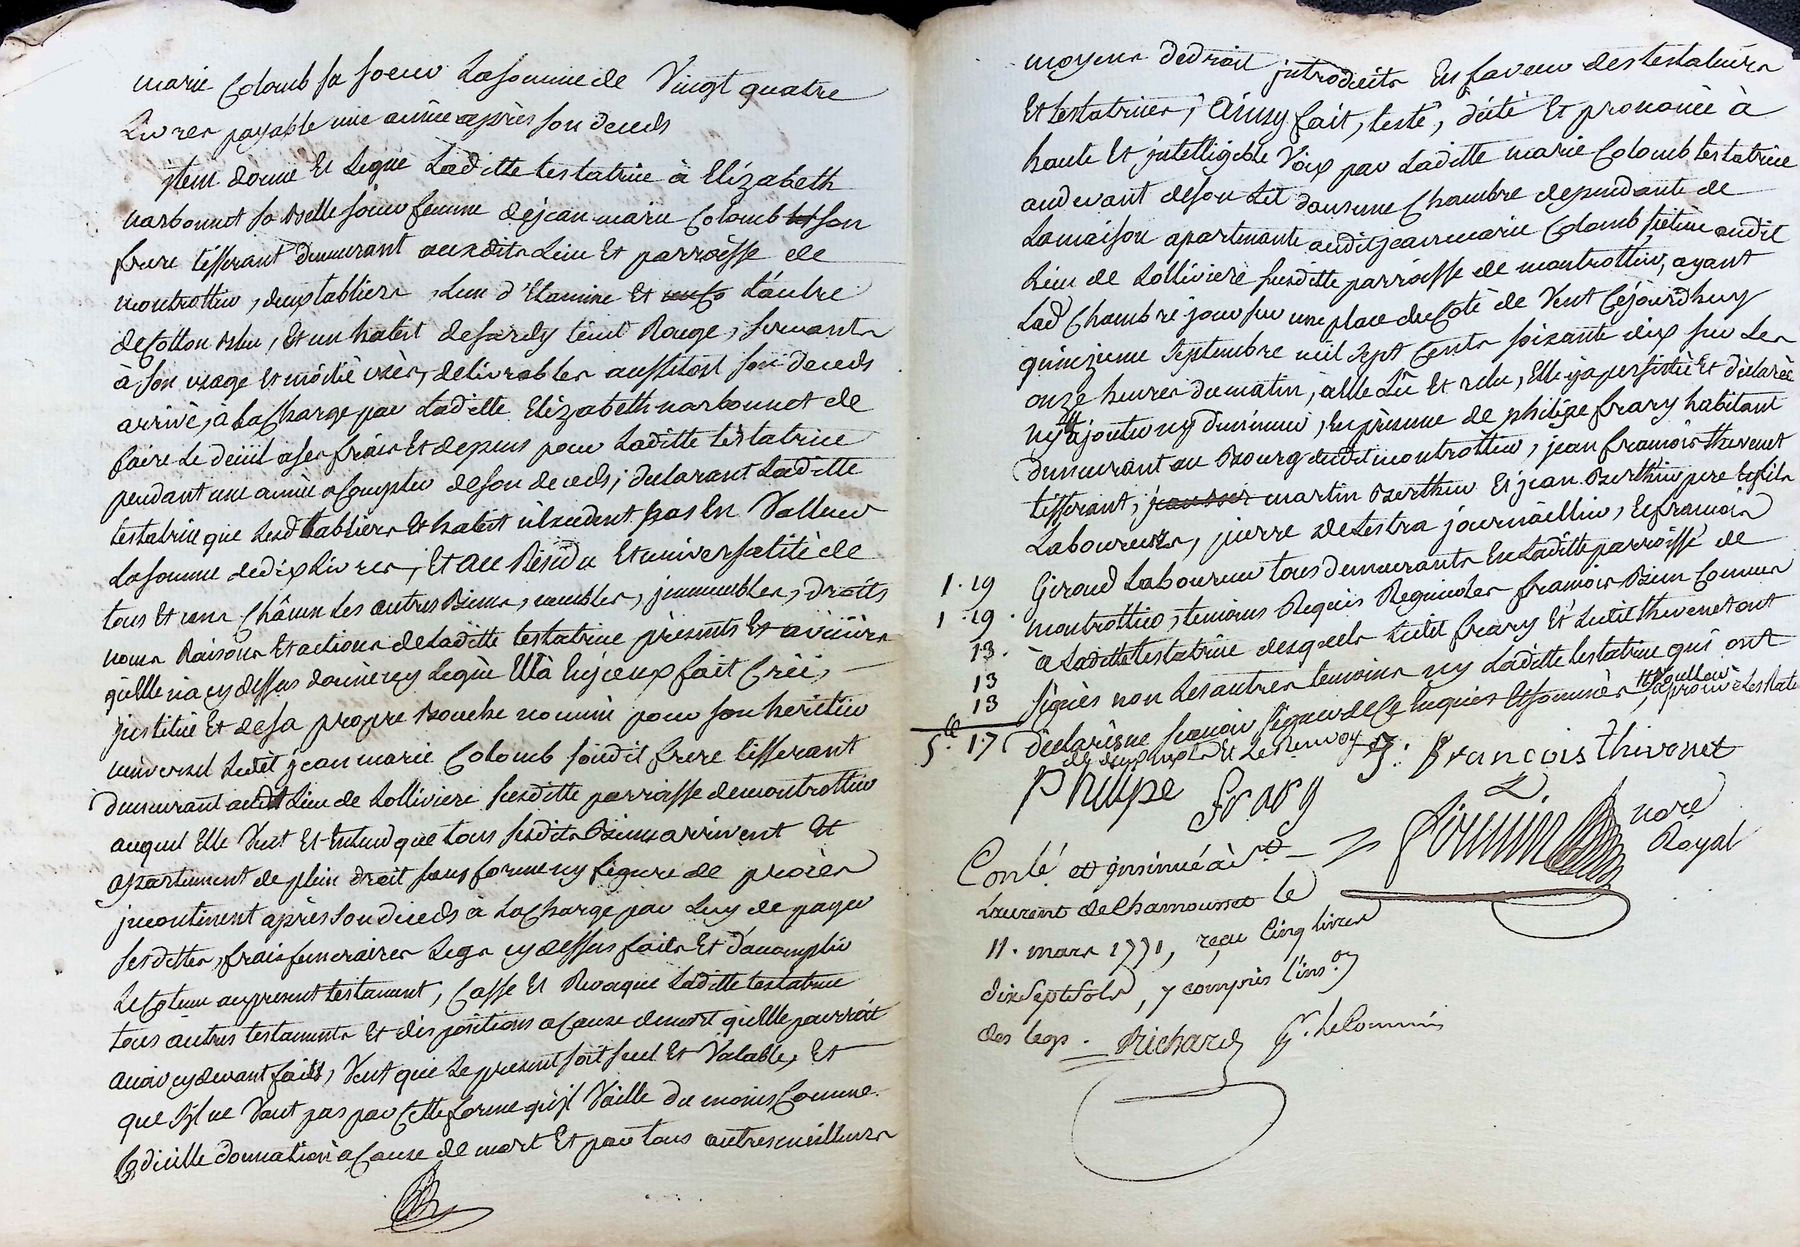 marie Colomb sa soeur La somme de Vingt quatre
Livres payable une année après son deceds
jtem donne Et Legue Laditte testatrice à Elizabeth
narbonnet sa Belle soeur femme de jean marie Colomb son
frere tisserant demeurant aux dits Lieu Et parroisse de
montrottier, deux tabliers, Lun d'Etamine Et L'autre
de Cotton bleu, Et un habit de sardy teint Rouge, servants
à son usage Et moitié usés, delivrables aussitost son deceds
arrivé, à La Charge par Laditte Elizabeth narbonnet de
faire Le deüil a ses frais Et depens pour Laditte testatrice
pendant une année a Compter de son deceds; declarant Laditte
testatrice que Lesd tabliers Et habit n'Excedent pas En Valleur
La somme de dix Livres, Et au Residu Et universalité de
tous Et uns Châcun Les autres Biens, meubles, jmmeubles, droits
noms Raisons Et actions de Laditte testatrice présents Et aveniirs
qu'Elle n'a cy dessus donné ny Legué Elle à Enjceux fait Créé,
jnstitué Et de sa propre Bouche nommé pour son heritier
universel Ledit jean marie Colomb sondit frere tisserant
demeurant audit Lieu de Lolliviere susditte parroisse de montrottier
auquel Elle Veut Et Entend que tous sesdits Biens arrivent Et
apartiennent de plein droit sans forme ny figure de procès
jncontinent après son deceds à La Charge par Luy de payer
ses dettes, frais funeraires Legs cy dessus faits Et d'accomplir
Le Contenu au present testament, Casse Et Revoque Laditte testatrice
tous autres testaments Et dispositions a Cause de mort qu'Elle pourroit
avoir cy devant faits, Veut que Le present soit seul Et Valable, Et
que s'jl ne Vaut pas par Cette forme qu'jl Vaille du moins Comme
Codicille donnation à Cause de mort Et par tous autres meilleurs
moyens de droit jntroduits En faveur des testateurs
Et testatrices, Ainsy fait, testé, dicté Et prononcé à
haute Et jntelligible Voix par Laditte marie Colomb testatrice
au devant de son Lit dans une Chambre dependante de
La maison apartenante audit jean marie Colomb size audit
Lieu de Lolliviere susditte parroisse de montrottier, ayant
Lad Chambre jour sur une place du Coté de Vent Cejourdhuy
quinzieme septembre mil sept Cents soixante dix sur Les
onze heures du matin, à Elle Lü Et relu, Elle y a persisté Et déclaré
ny ajouter ny diminuer, En présence de philipe frary habitant
demeurant au Bourg dudit montrottier, jean françois thevenet
tisserant, martin Berthier Et jean Berthier pere Et fils
Laboureurs, pierre de Lestra journaillier, Et françois
Giroud Laboureur tous demeurants En Laditte parroisse de
montrottier, temoins Requis Regnicoles françois Bien Connus
à Laditte testatrice desquels Ledit frary Et Ledit thevenet ont
signés non Les autres temoins ny Laditte testatrice qui ont
déclarés ne sçavoir signer de Ce Enquis Et sommés
1. 19
1. 19.
13.
13
13
5ll. 17
Philipe frary
J: François thivenet
nore
Royal
Conlé. et jnsinué à St
Laurent de Chamousset le
11. mars 1771, reçu Cinq livres
dix sept sols, y compris l'inson
des legs. Richard Gr. le Commis